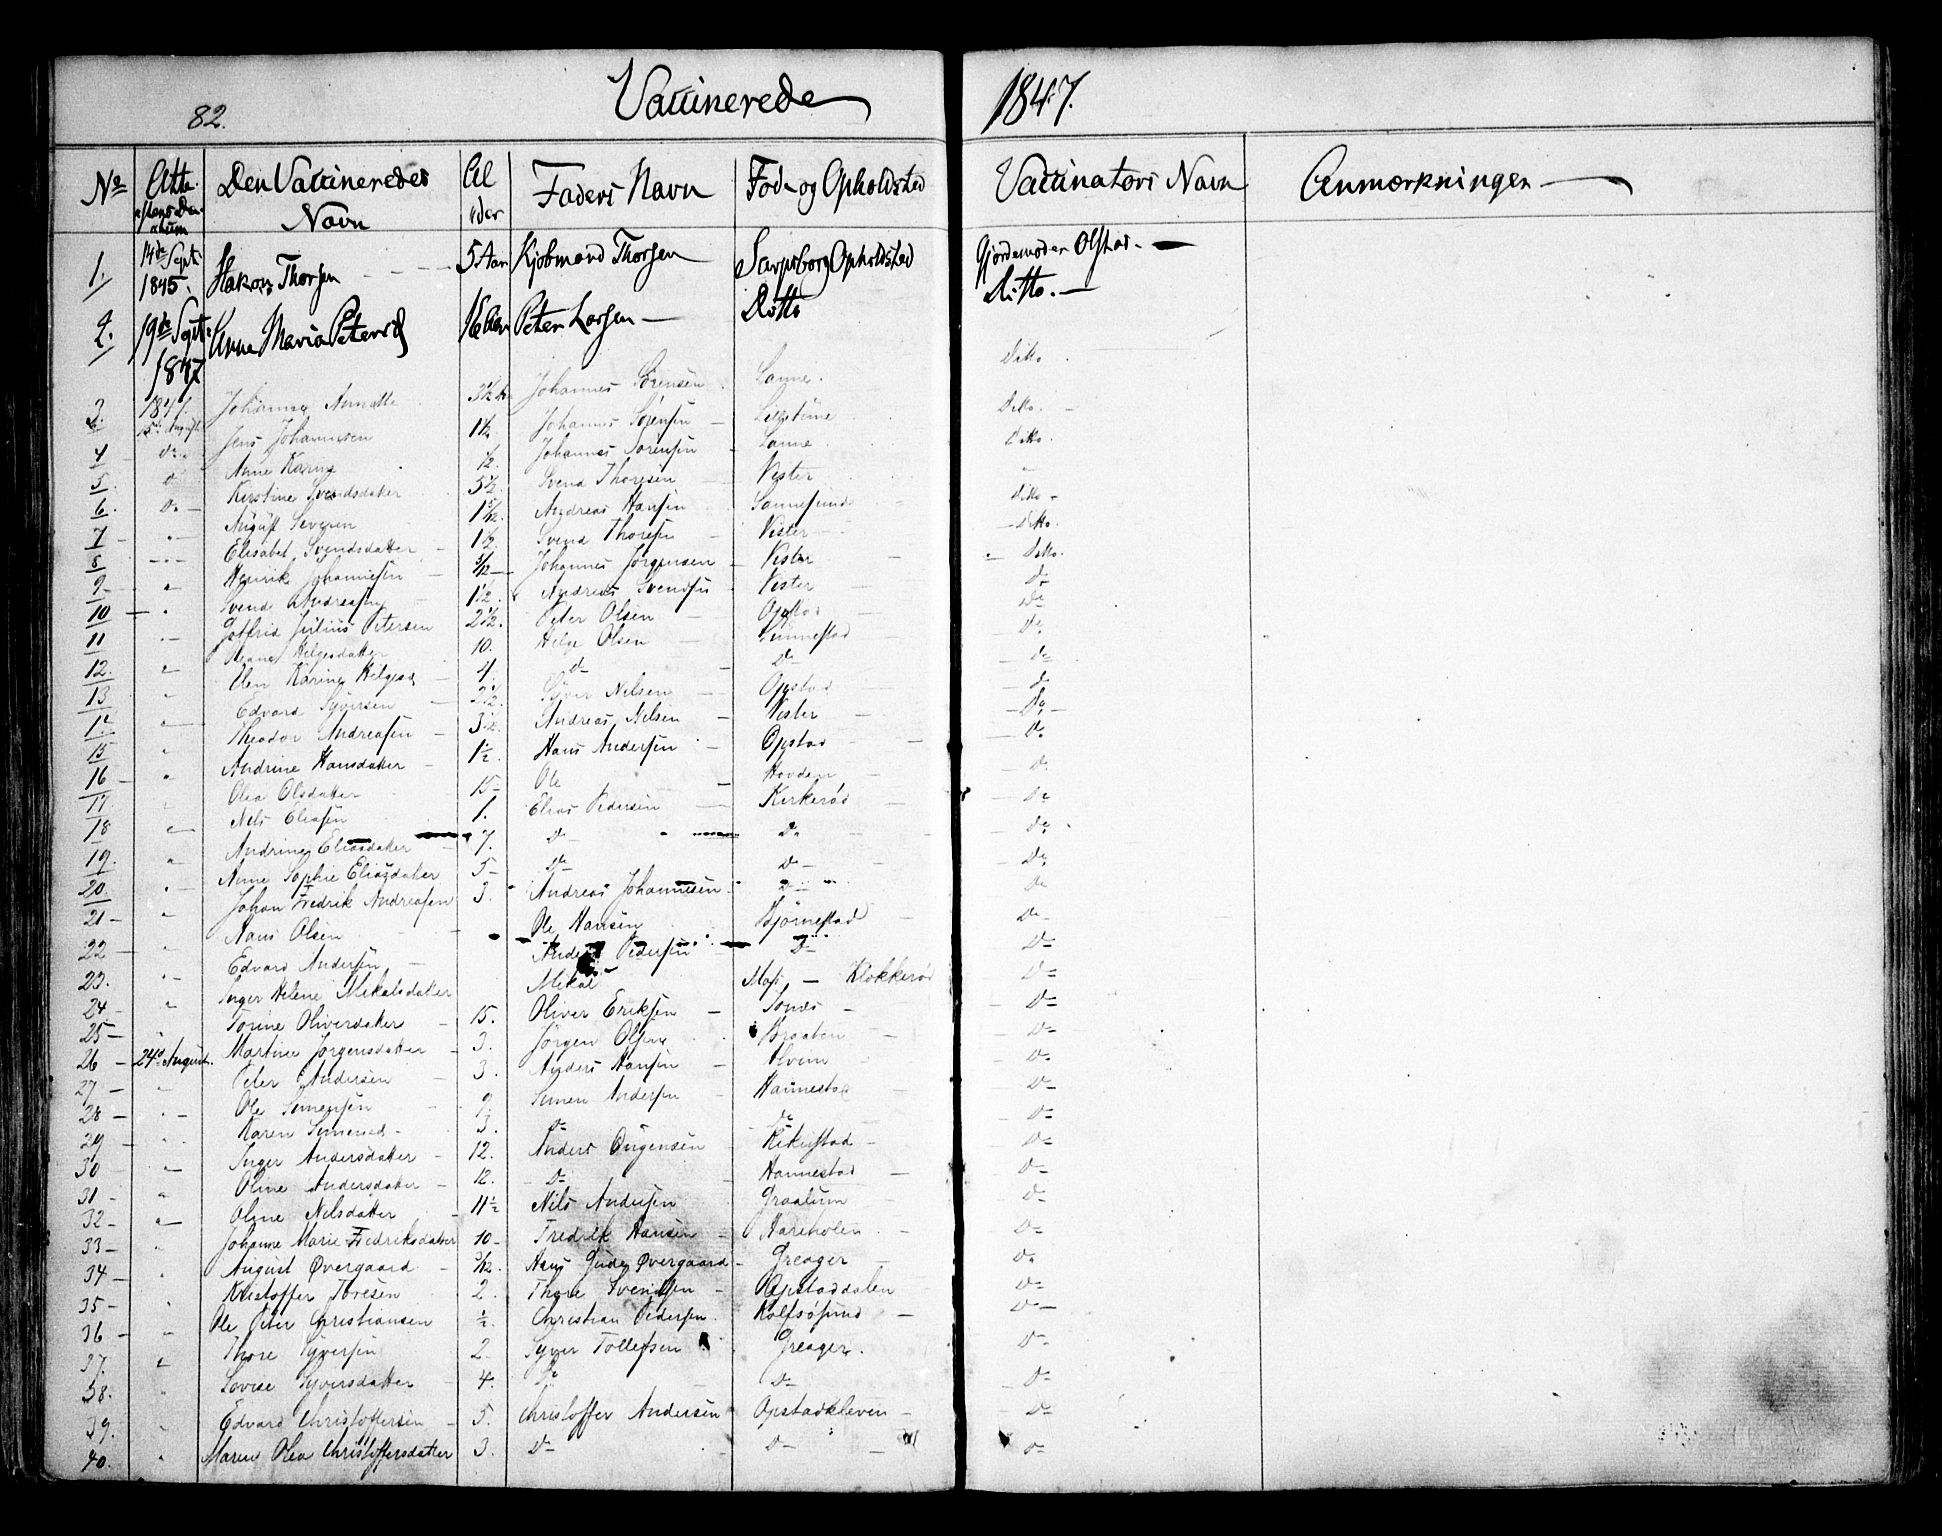 82. Vaccinerede 1847.
No Atte stens Da tum Den Vaccineredes Navn Al der Faders Navn Føde og Opholdsted Vaccinators Navn Anmærkninger
1. 14de Sept. 1845. Hakon Thorsen 5 Aar Kjøbmand Thorsen Sarpsborg Opholdsted Gjordemoder Olstad
2. 19de Sept. 1847 Anne Maria Petersd 16 Aar Peter Larsen Ditto Ditto
3. 1847. 15de August Johanne Annette 3½ Johannes Sørensen Sanne Ditto
4 Do Jens Johannesen 1½ Johannes Sørensen Ditto
5. Do Anne Karine ½ Johannes Sørensen Sanne Ditto
6. Do Kirstine Svendsdatter 5½ Svend Thoresen Vister
7 August Severin 1 5/12 Andreas Hansen Sannesund Ditto
8 Elisabet Svendsdatter 1½ Svend Thoresen Vister Ditto
9 Henrik Johannesen 5/12 Johannes Jørgensen Vister Ditto
10 Svend Andreasen 1½ Andreas Svendsen Vister Do
11 Julius Petersen 2½ Peter Olsen Opstad Do
12. Helgesdatter 10. Helge Olsen Do
13 Karine Helgesd 4. Do Do Do
14 Edvard Syversen 2½ Syver Nilsen Opstad Do
15 Theodor Andreasen 3½ Andreas Nilsen Vister Do
16 Andrine Hansdatter 1½ Hans Andersen Opstad Do
17. Olea Olsdatter 15 Ole Hovden Do
18 Nils Eliasen 1. Elias Pedersen Kirkerød Do
19. Andrine Eliasdatter 7. Do Do Do
20. Anne Sophie Eliasdatter 5 Do Do Do
21 Johan Fredrik Andreasen 3. Andreas Johannesen Do Do
22 Hans Olsen Ole Hansen Bjørnestad Do
23. Edvard Andersen Anders Pedersen Do Do
24 Inger Helene Mikalsdatter Mikal Klokkerød Do
25 Torine Oliverdatter 15. Oliver Eriksen Do
26 24de August Martine Jørgensdatter 3. Jørgen Olsen Braaten Do
27 Peter Andersen 3. Anders Hansen Do
28 Ole Simensen Simen Andersen Hannestad Do
29 Karen Simensd 3. Do Do Do
30 Inger Andersdatter 12. Anders Do
31 Oline Andersdatter 12. Do Hannestad Do
32 Oline Nilsdatter 11½ Nils Andersen Graalum Do
33 Johanne Marie Fredriksdatter 10 Fredrik Hansen Hareholen Do
34 August Øvergaard Hans Gude Øvergaard Greager Do
35 Kristoffer Toresen 2. Thore Svendsen Opstaddalen Do
36 Ole Peter Christiansen ½. Christian Pedersen Rolfsøsund Do
37. Thore Syversen 2 Syver Tollefsen Greager Do
38. Lovise Syversdatter 4. Do Do Do
39. Edvard Christoffersen 5. Christoffer Andersen Opstadkleven Do
40. Maren Olea Christoffersdatter 3. Do Do Do